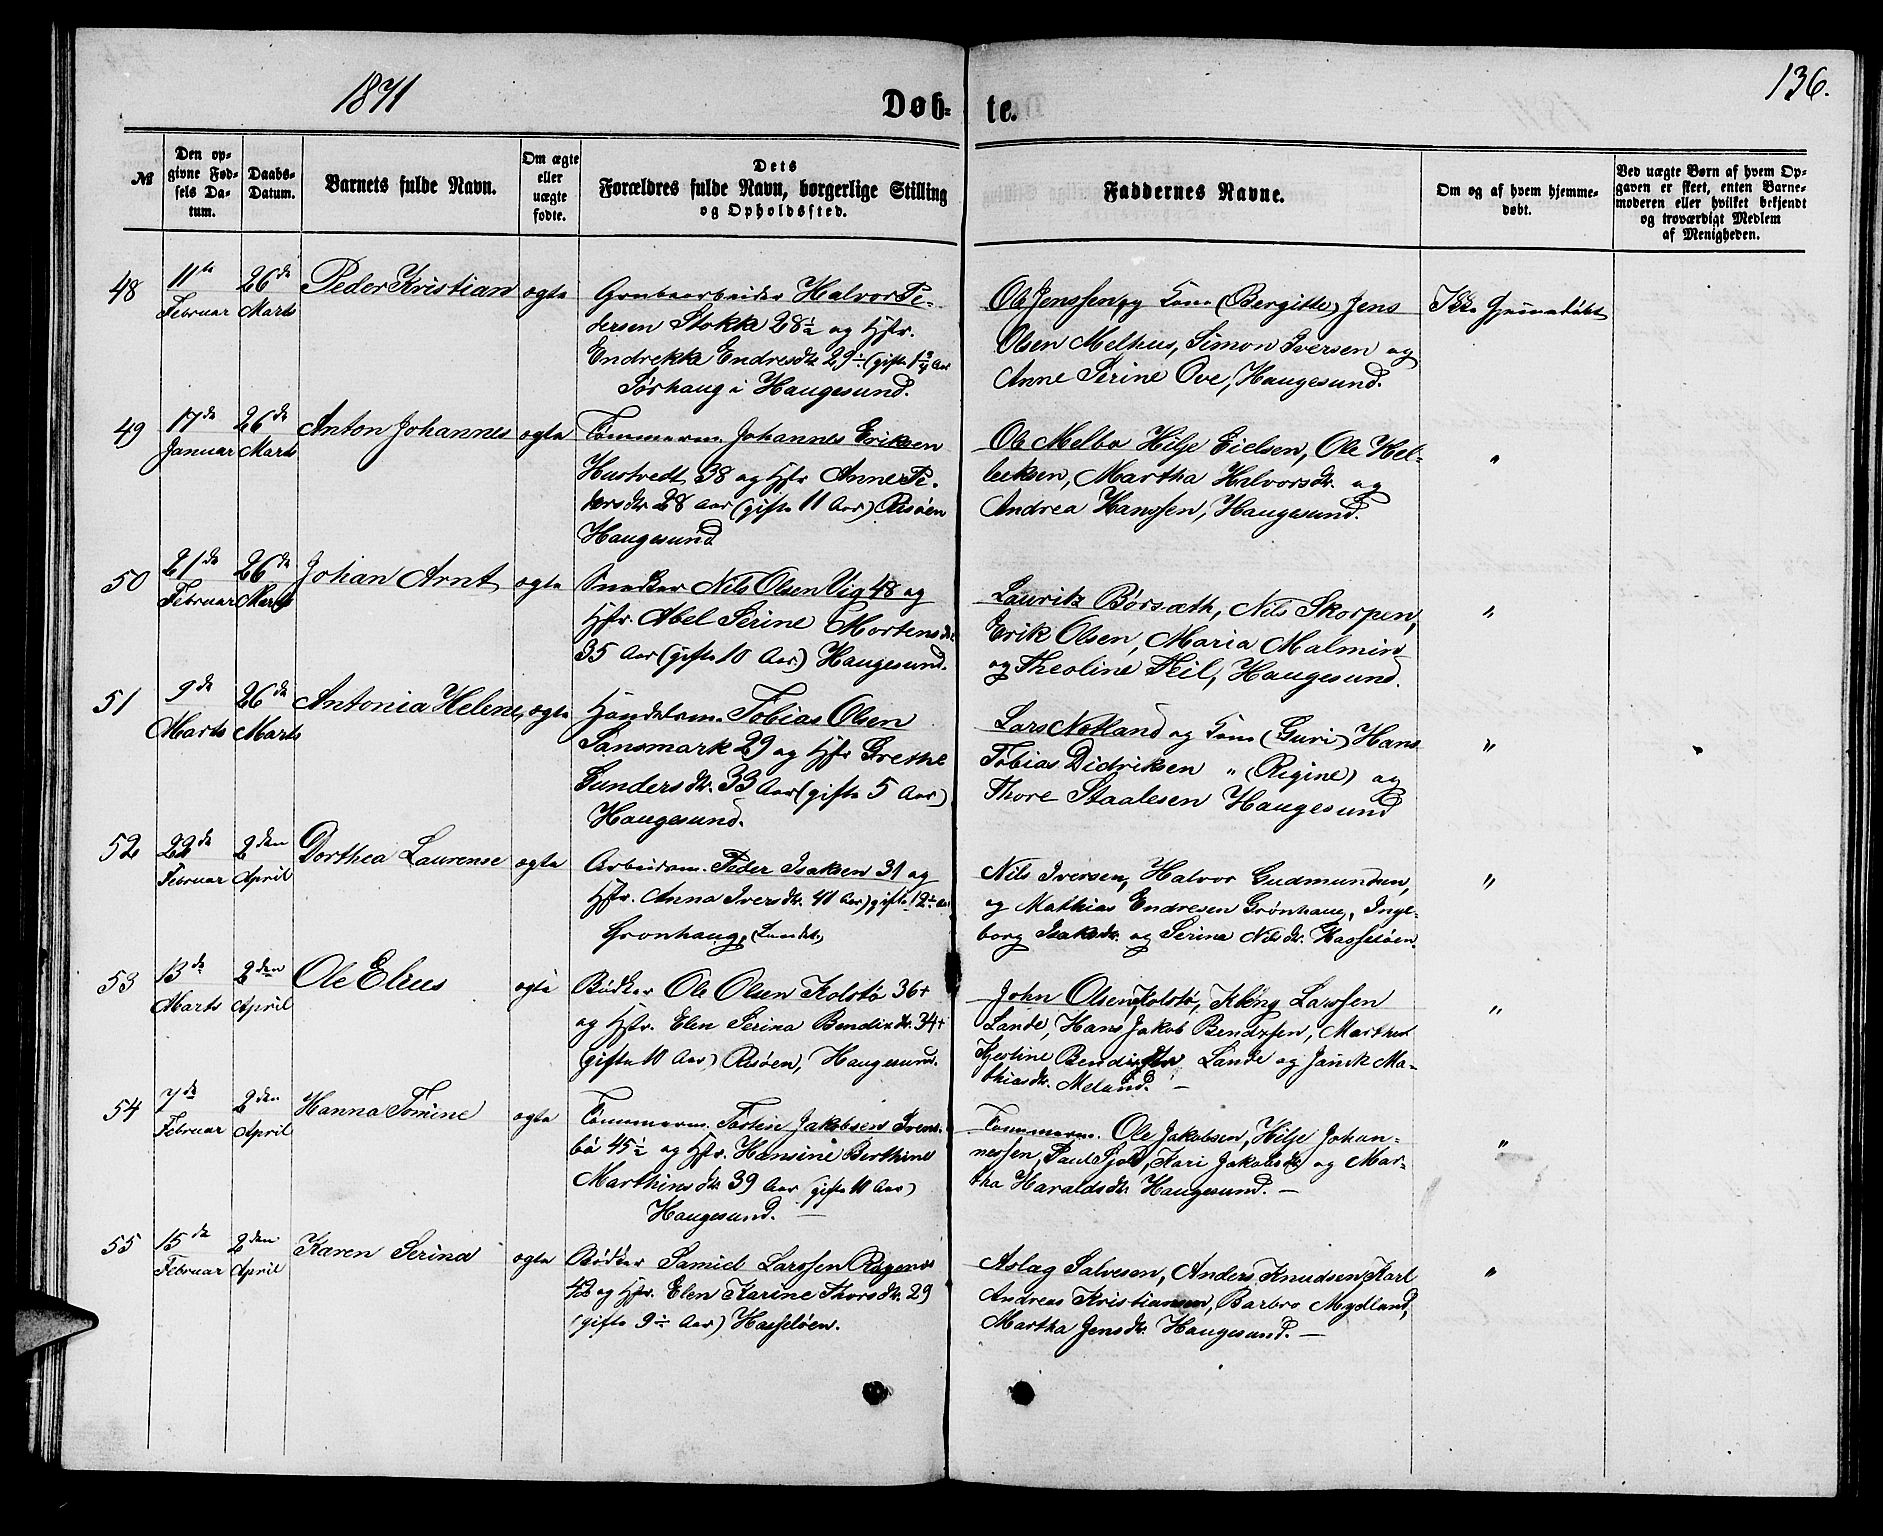 1871
Døb- te.
136.
№
Den op-
givne Fød-
sels Da-
tum.
Daabs-
Datum.
Barnets fulde Navn.
Om ægte
eller
uægte
fødte.
Dets
Forældres fulde Navn, borgerlige Stilling
og Opholdssted.
Faddernes Navne.
Om og af hvem hjemme-
døbt.
Ved uægte Børn af hvem Op-
gaven er skeet, enten Barne-
moderen eller hvilket bekjendt
og troværdigt Medlem
af Menigheden.
48
11te
Februar
26de
Marts
Peder Kristian
ægte
Grubearbeider Halvor Pe-
dersen Stokke 28½ og Hstr.
Endrekke Endresdtr. 29 (gifte 1¾ Aar
Sørhaug i Haugesund.
Ole Jenssen og Kone (Bergitte) Jens
Olsen Melhus, Simon Iversen og
Anne Serine Ove, Haugesund.
Ikke Hjemmedøbt
49
17de
Januar
26de
Marts
Anton Johannes
ægte
Tømmerm. Johannes Eriksen
Hustvedt 38 og Hstr Anne Pe-
dersdtr 28 Aar (gifte 11 Aar) Risøen
Haugesund
Ole Melbo Hilje Eielsen, Ole Hel-
liesen, Martha Halvorsdtr. og
Andrea Hanssen, Haugesund.
"
50
21de
Februar
26de
Marts
Johan Arnt
ægte
Snedker Nils Olsen Vig 48 og
Hstr. Abel Serine Mortensdtr.
35 Aar (gifte 10 Aar) Haugesund.
Lauritz Børsæth, Nils Skorpen,
Erik Olsen, Maria Malmin
og Theoline Feil, Haugesund.
"
51
9de
Marts
26de
Marts
Antonia Helene,
ægte
Handelsm. Tobias Olsen
Sansmark 29 og Hstr Grethe
Gundersdtr. 33 Aar (gifte 5 Aar)
Haugesund.
Lars Netland og Kone (Guri) Hans
Tobias Didriksen " (Regine) og
Thore Staalesen Haugesund
"
52
22de
Februar
2den
April
Dorthea Laurense
ægte
Arbeidsm. Peder Isaksen 31 og
Hstr. Anna Iversdtr. 41 Aar) gifte 12½ Aar
Grønhaug, (Landet.)
Nils Iversen, Halvor Gudmundsen,
og Mathias Endresen Grønhaug, Inge-
borg Isaksdtr. og Serine Nilsdtr. Hasseløen.
"
53
13de
Marts
2den
April
Ole Elius
ægte
Bødker Ole Olsen Kolstø 36+
og Hstr. Elen Serina Bendixdtr. 34+
(gifte 10 Aar) Risøen, Haugesund.
John Olsen Kolstø, Kleng Larssen
Lande, Hans Jakob Bendixsen, Marthe
Kjestine Bendixdtr Lande og Janik Ma-
thiasdtr. Meland. —
"
54
7de
Februar
2den
April
Hanna Tomine
ægte
Tømmerm. Tostein Jakobsen Svens-
bø 45½ og Hstr. Hansine Berthine
Marthinsdtr. 39 Aar gifte 11 Aar)
Haugesund. —
Tømmerm. Ole Jakobsen, Hilje Johan-
nessen, Paul Sjo, Kari Jakobsdtr og Mar-
tha Haraldsdtr. Haugesund. —
"
55
15de
Februar
2den
April
Karen Serina
ægte
Bødker Samiel Larssen Røgenes
42 og Hstr. Elen Karine Thorsdtr. 29
(gifte 9½ Aar) Hasseløen.
Aslag Salvesen, Anders Knudsen, Karl
Andreas Kristiansen, Barbro Mydland,
Martha Jensdtr. Haugesund. —
"